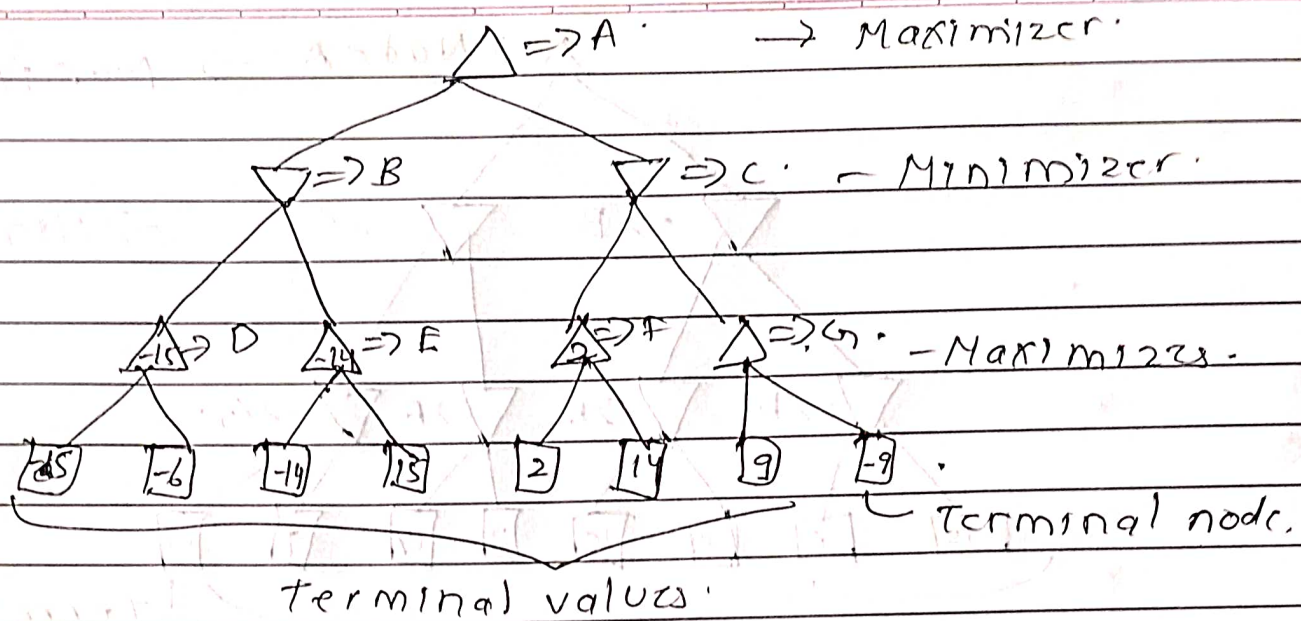 => A. → Maximizer.
=> B => C. - Minimizer.
-15 => D -14 => E 2 => F => G. - Maximizrs.
-15 -6 -14 15 2 14 9 -9 .
Terminal node.
terminal values.